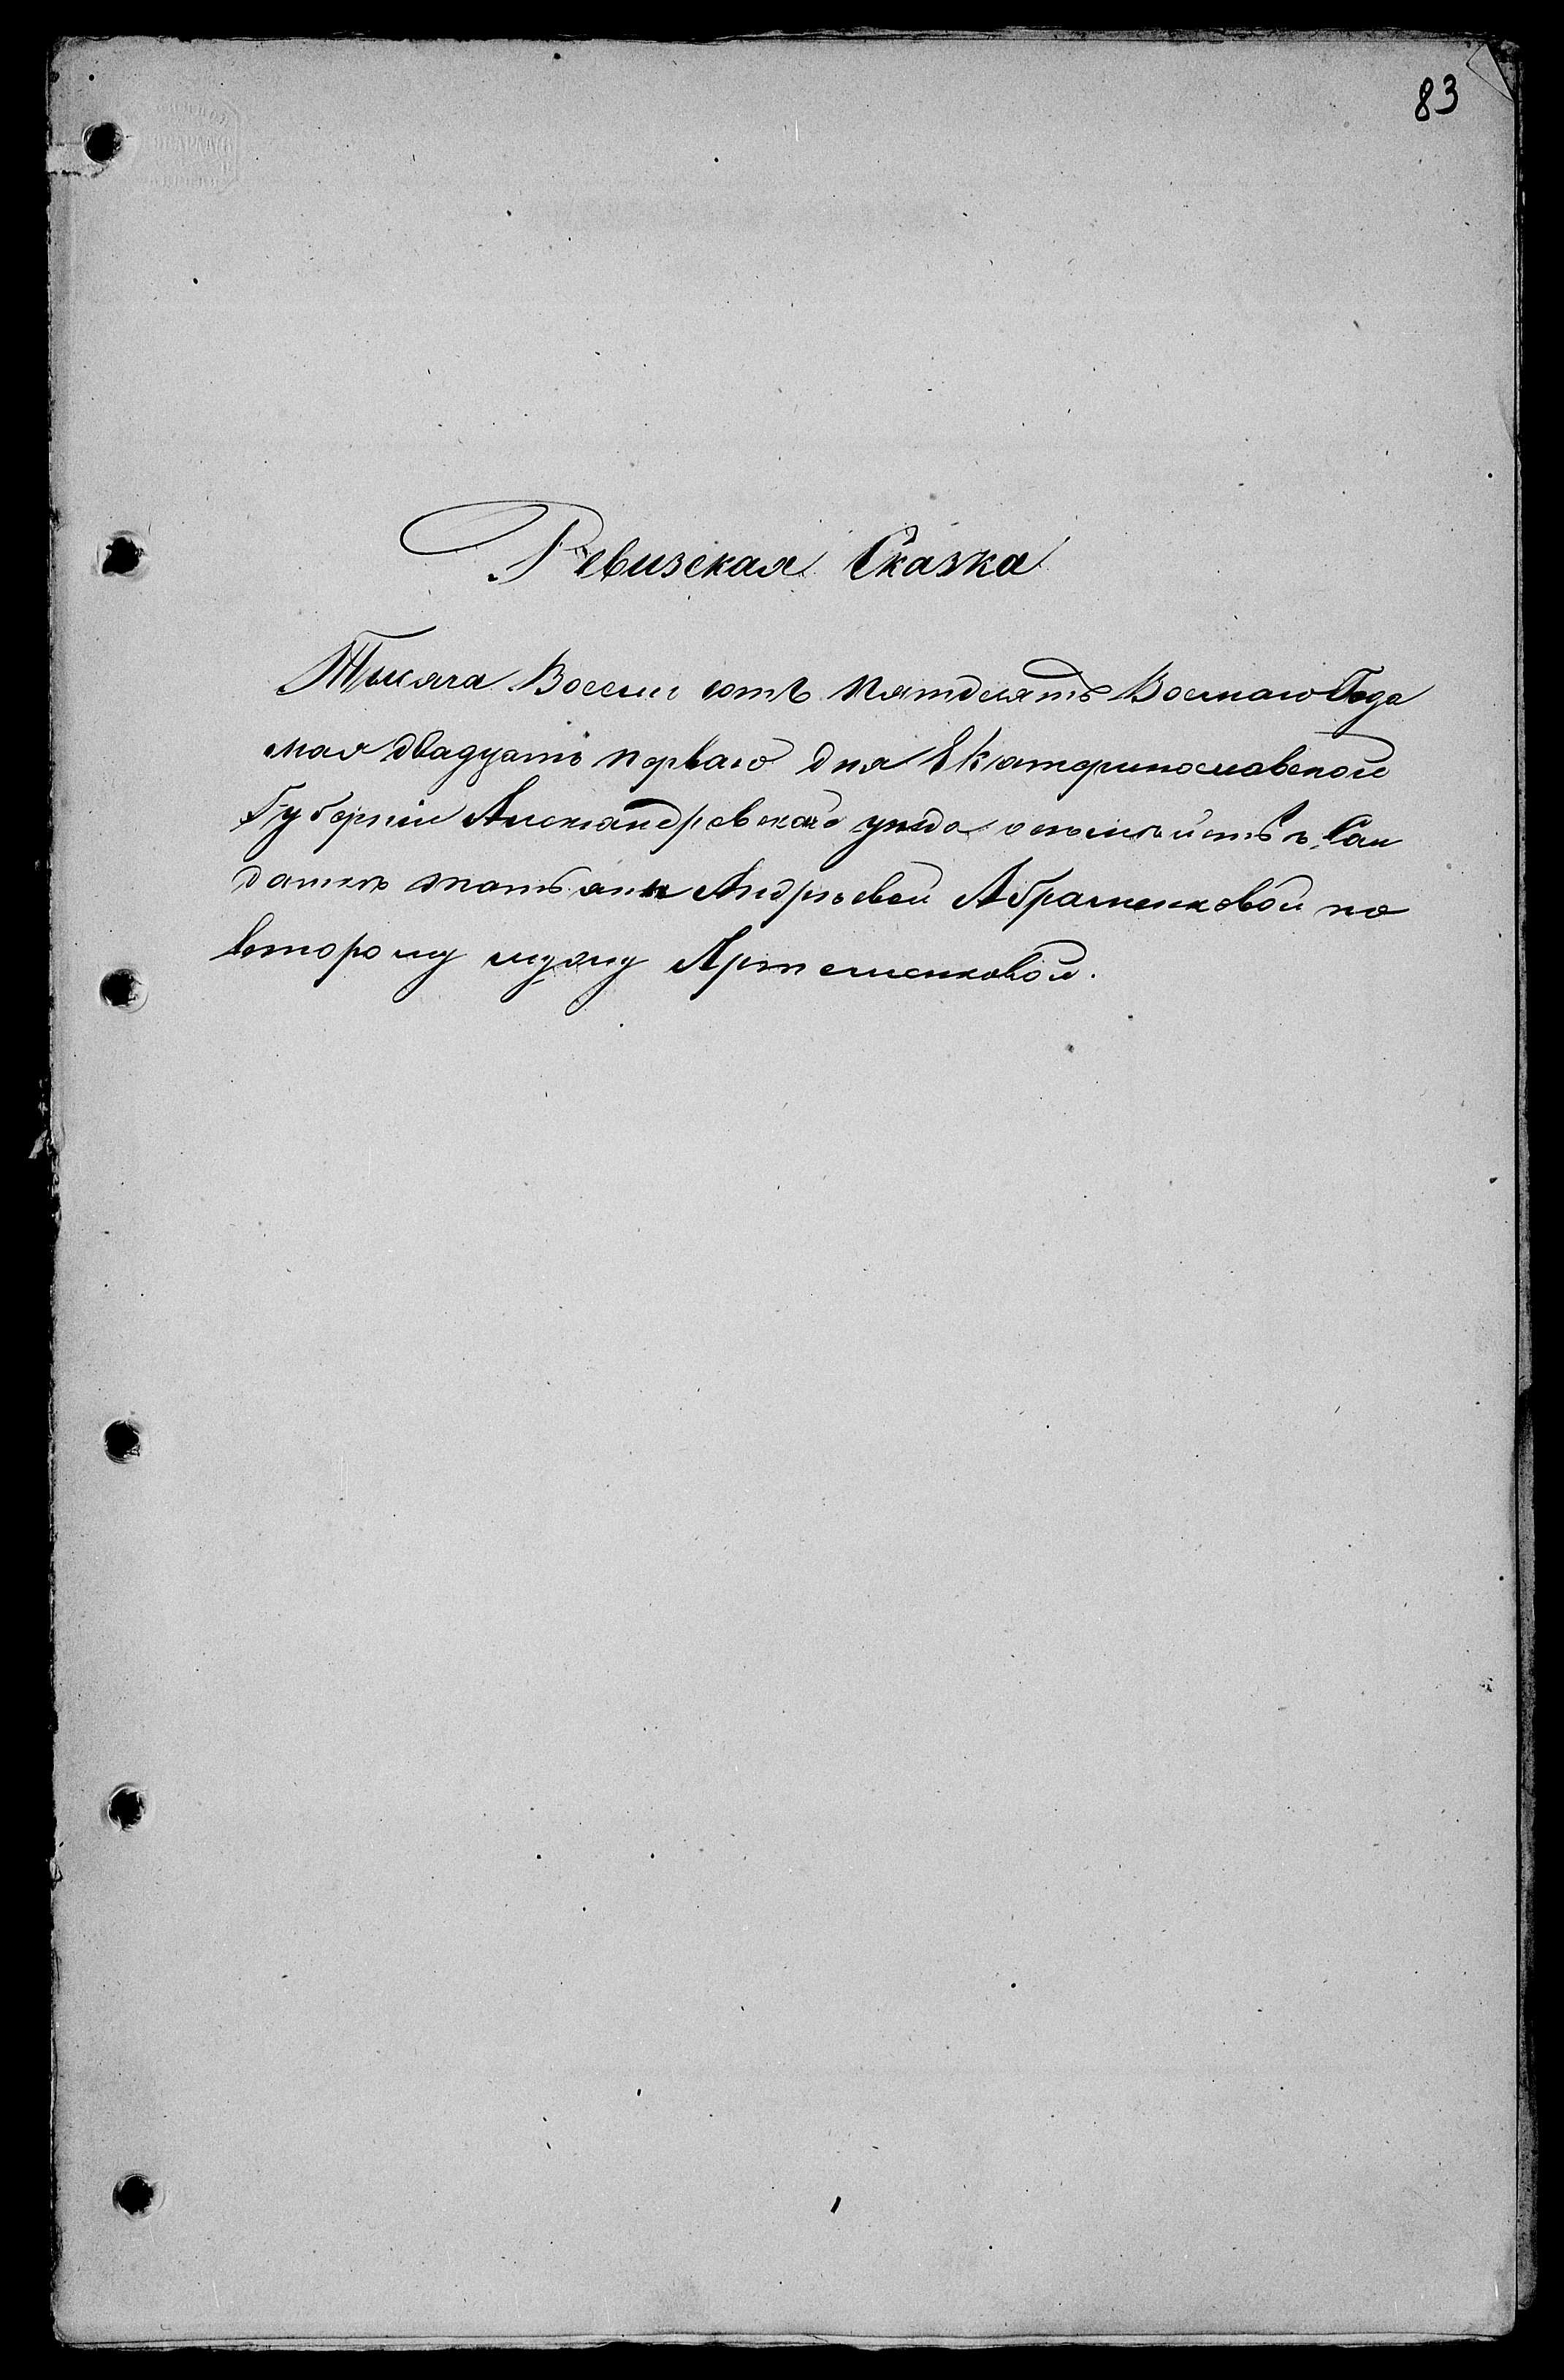 83
Ревизская Сказка
Тысяча Восемь сотъ пятдесятъ Восмаго Года
мая двадцать перваго дня Екатеринославской
Губерніи Александревскаго уезда о семействѣ Сал
даткѣ татьяни Андрѣевой Абраменковой по
второму мужу Артеменковой.